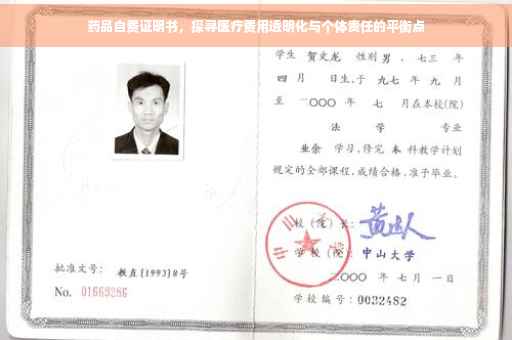 药品自费证明书，探寻医疗费用透明化与个体责任的平衡点
学生 贺文龙 性别 男 ，七三 年
四 月 日生，于 九七 年 九 月
至 二〇〇〇 年 七 月在本校(院)
法 学 专业
业余 学习，修完 本 科教学计划
规定的全部课程，成绩合格，准予毕业。
校（院）长：
学校（院）：中山大学
二〇〇〇 年 七 月 一 日
批准文号： 教直[1993]8号
No. 01663286
学校编号：0032482